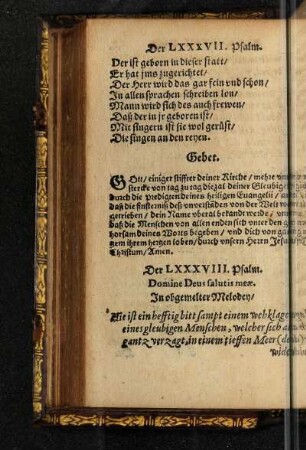 Der LXXXVII. Psalm.
Der ist geborn in dieser statt/
Er hat jms zugerichtet/
Der Herr wird das gar fein vnd schon/
In allen sprachen schreiben lon/
Mann wird sich des auch frewen/
Daß der in jr geboren ist/
Mit singern ist sie wol gerüst/
Die singen an den reyen.
Gebet.
GOtt/ einiger stiffter deiner Kirche/ mehre vnnd
stercke von tag zu tag die zal deiner Gleubigen
durch die predigen deines heiligen Euangelii/
daß die finsterniß deß vnuerstands von der Welt
getrieben/ dein Name vberal bekandt werde/ vnnd
daß die Menschen von allen enden sich vnter den ge-
horsam deines Worts begeben/ vnd dich von gan-
tzem jhrem hertzen loben/ durch vnsern Herrn Jesum
Christum/ Amen.
Der LXXXVIII. Psalm.
Domine Deus salutis meæ.
In obgemelter Melodey/
Hie ist ein hefftig bitt sampt einem wehklage
eines gleubigen Menschen, welcher sich
gantz verzagt, in einem tieffen Meer